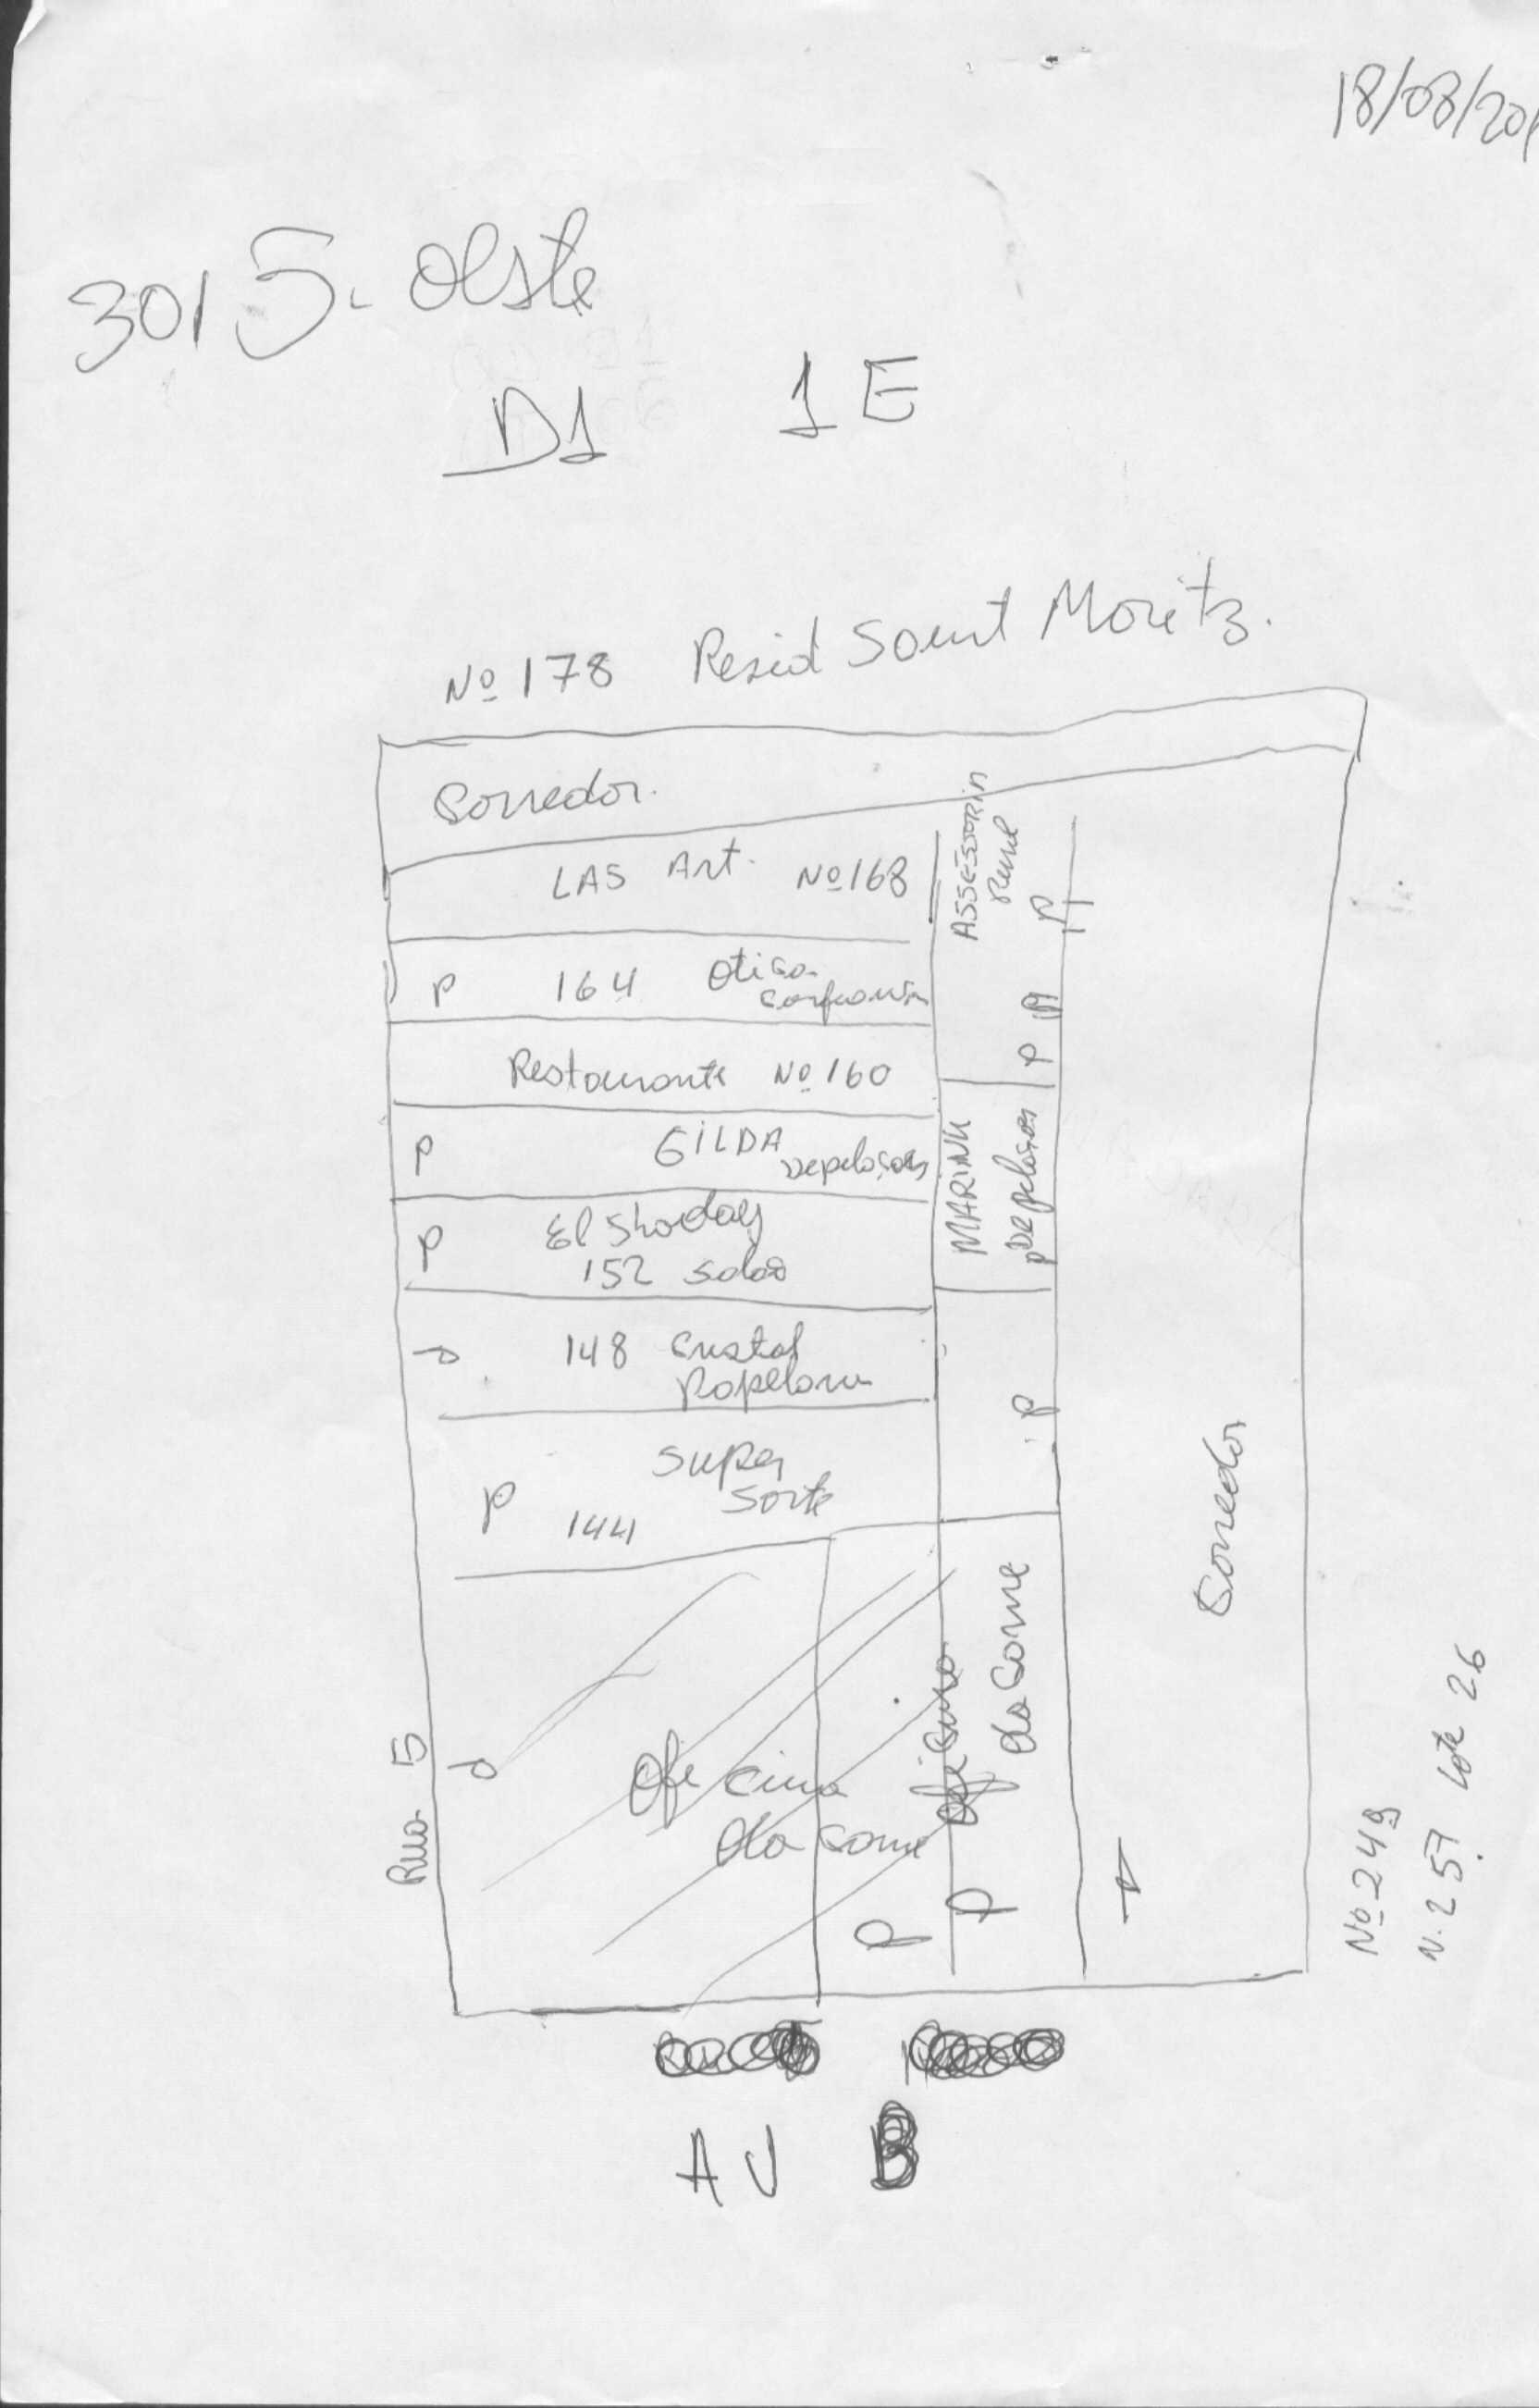 18/08/201
301 S. Oeste
D1 1 E
Nº 178 Resid Saint Moritz.
Corredor.
LAS Art. Nº 168
P 164 Otica
Restaurante Nº 160
P GILDA Depelações
P El Shaday
152 salão
P 148 Cristal
Papelaria
Super
P 144 Sorte
Oficina
da Carne
P
ASSESSORIA
Rural
P
P P
MARINN
Depelações
P
P
Oficina
da Carne
P
P
Corredor
Rua 5
Nº 249
N. 257 Lote 26
AV B